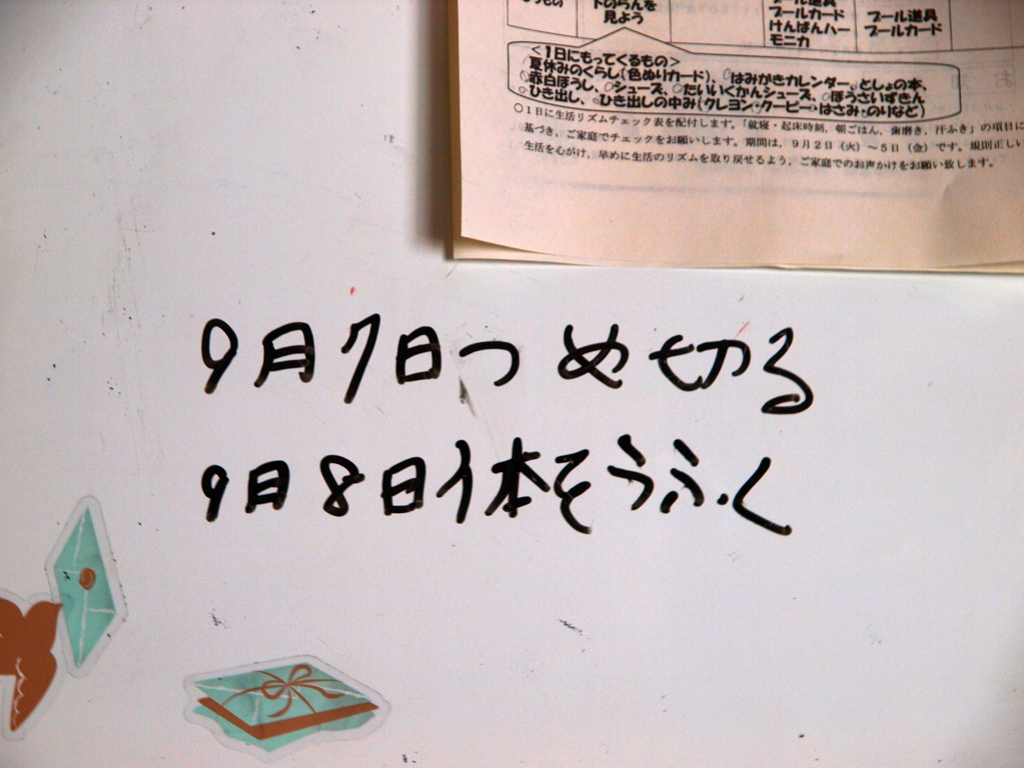 見よう
プールカード
けんばんハー
モニカ
プール道具
プールカード
<1日にもってくるもの>
夏休みのくらし(色ぬりカード)、○はみがきカレンダー、としょの本、
赤白ぼうし、○シューズ、○たいいくかんシューズ、○ぼうさいずきん
○ひき出し、○ひき出しの中み(クレヨン・クーピー・はさみ・のりなど)
○1日に生活リズムチェック表を配付します。「就寝・起床時刻，朝ごはん，歯磨き，汗ふき」の項目に
基づき，ご家庭でチェックをお願いします。期間は，9月2日（火）～5日（金）です。規則正しい
生活を心がけ，早めに生活のリズムを取り戻せるよう，ご家庭でのお声かけをお願い致します。
9月7日つめ切る
9月8日体そうふく